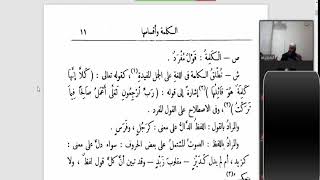 الكلمة وأقسامها ١١
ص – الكَلِمَةُ: قَوْلٌ مُفْرَدٌ.
ش – تُطْلَقُ الكلمة في اللغة على الجمل المفيدة(١)، كقوله تعالى: ﴿كَلَّا إِنَّهَا
كَلِمَةٌ هُوَ قَائِلُهَا﴾(٢) إشارة إلى قوله: ﴿رَبِّ ارْجِعُونِ لَعَلِّي أَعْمَلُ صَالِحًا فِيمَا
تَرَكْتُ﴾، وفي الاصطلاح على القول المفرد.
والمرادُ بالقول: اللفظ الدالُّ على معنى: كَرَجُلٍ، وفَرَسٍ.
والمراد باللفظ: الصوتُ المُشْتَمِلُ على بعض الحروف: سواء دلَّ على معنى:
كزيد، أم لم يدل كَدَيْزٍ – مقلوب زَيْدٍ – وقد تبين أنَّ كلَّ قول لفظٌ، ولا
ينعكس(٣)